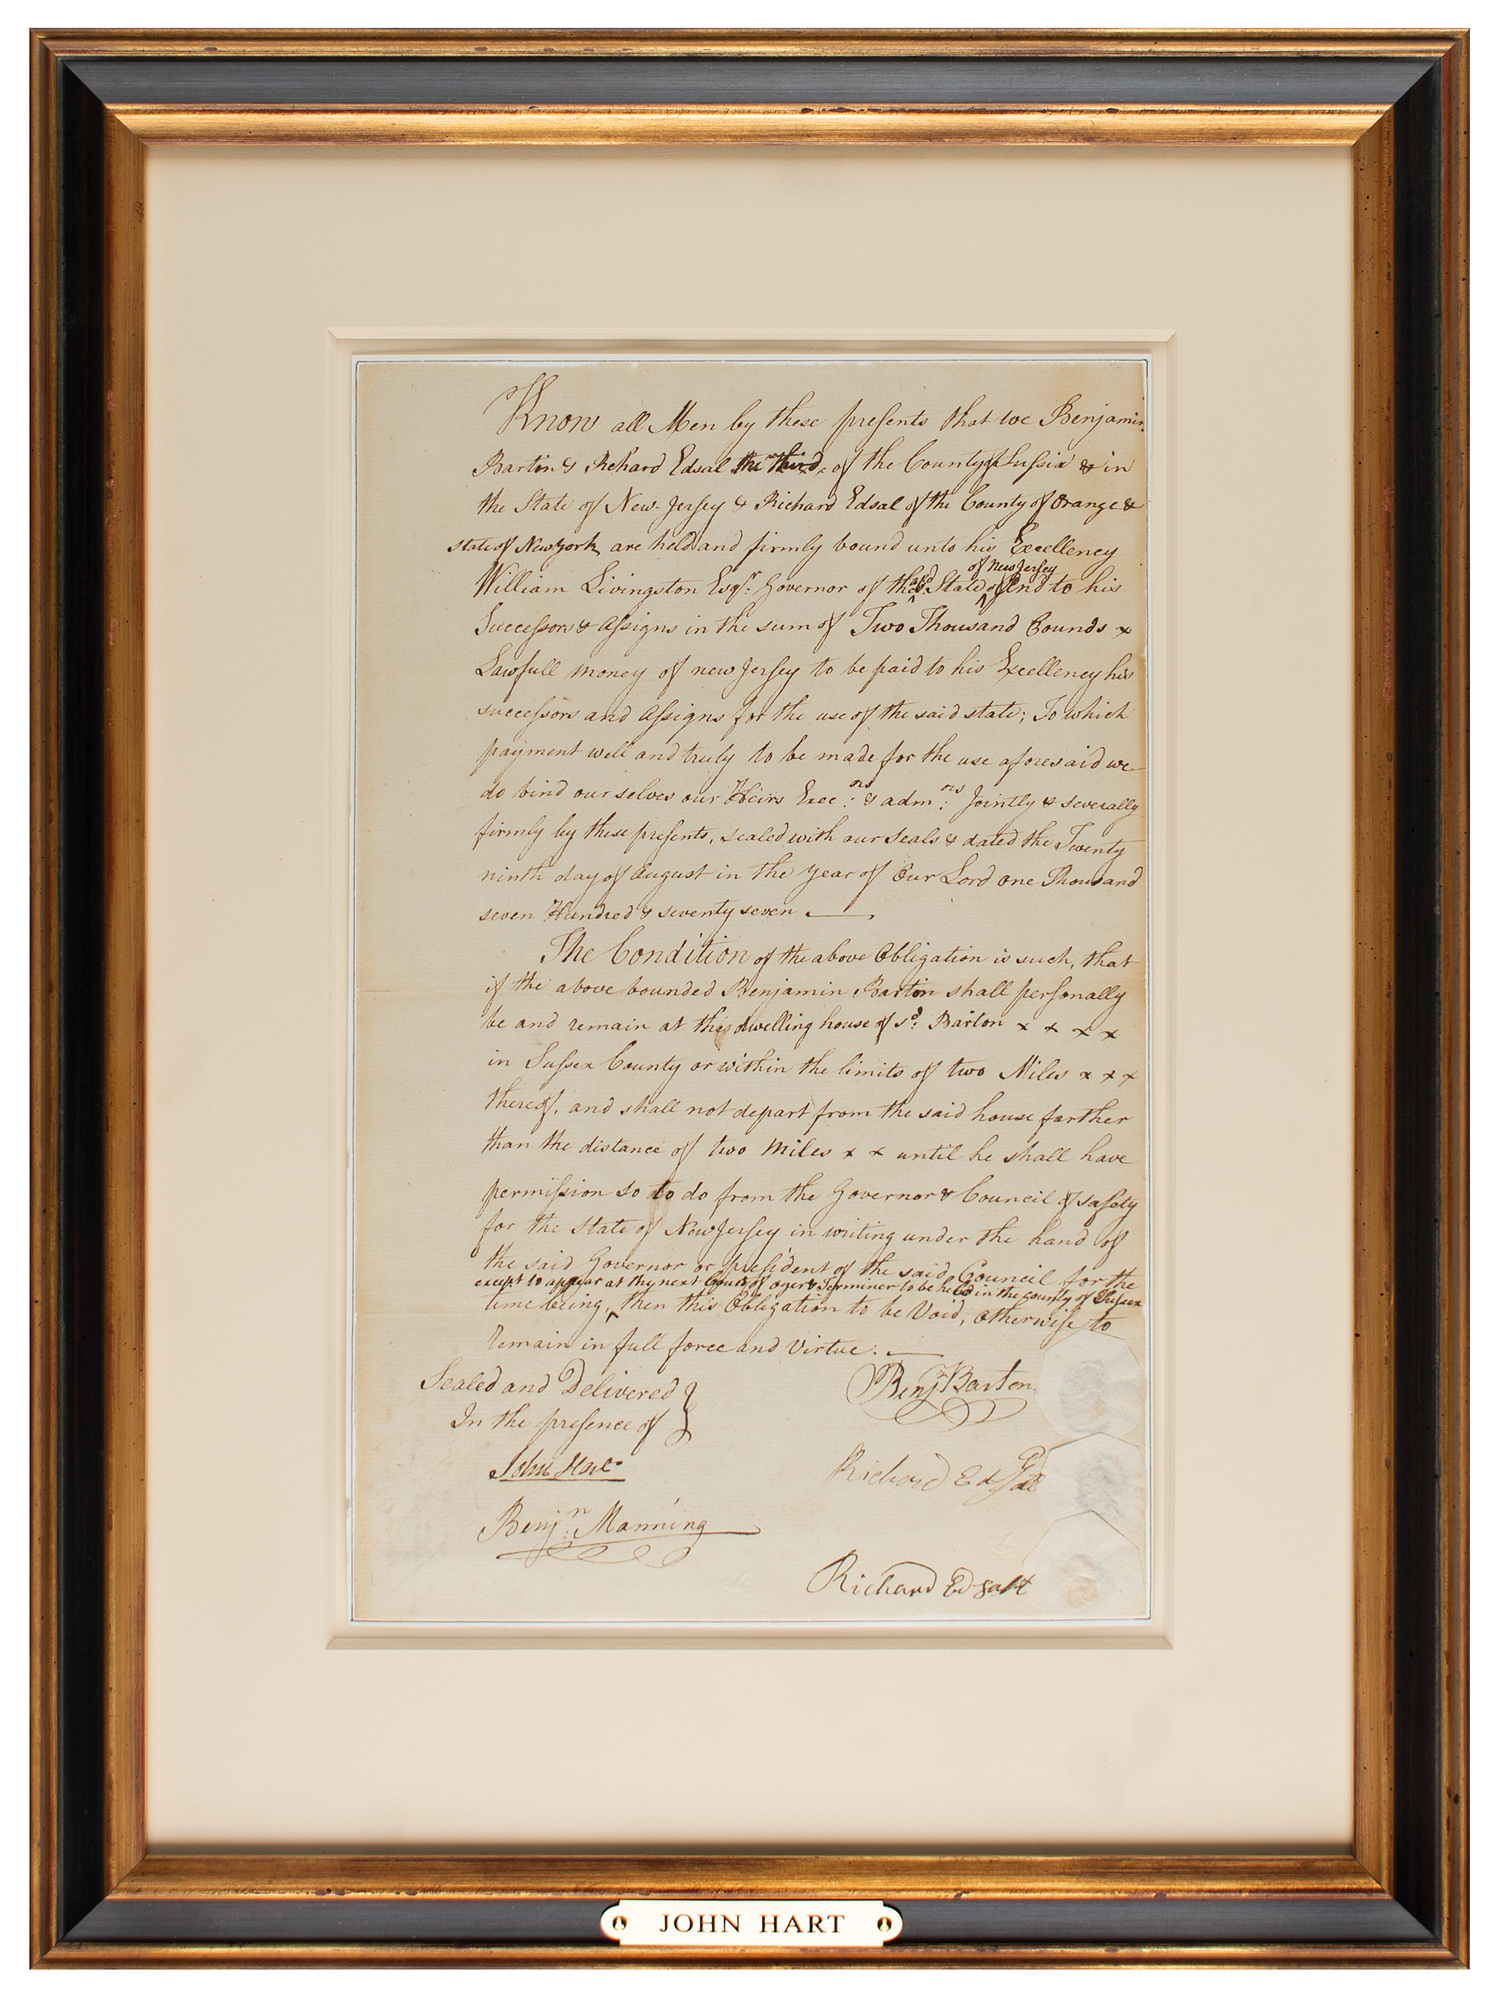 Know all Men by these presents that we Benjamin
Barton & Richard Edsal the third of the County of Sussex & in
the State of New-Jersey & Richard Edsal of the County of Orange &
state of New york are held and firmly bound unto his Excellency
of New Jersey
William Livingston Esqr. Governor of the State and to his
Successors & Assigns in the sum of Two Thousand Pounds x
Lawfull money of new Jersey to be paid to his Excellency his
successors and Assigns for the use of the said state; To which
payment well and truly to be made for the use aforesaid we
do bind ourselves our Heirs Exec.ors & adm.ns Jointly & severally
firmly by these presents, sealed with our seals & dated the Twenty
ninth day of August in the year of Our Lord one Thousand
seven Hundred & seventy seven
The Condition of the above Obligation is such, that
if the above bounded Benjamin Barton shall personally
be and remain at the dwelling house of sd. Barton x x x x
in Sussex County or within the limits of two Miles x x x
thereof, and shall not depart from the said house farther
than the distance of two Miles x x until he shall have
permission so to do from the Governor & Council of safety
for the State of New Jersey in writing under the hand of
the said Governor or president of the said Council for the
except to appear at the next Court of oyer & Terminer to be held in the county of Sussex
time being, then this Obligation to be Void, otherwise to
remain in full force and Virtue.
Sealed and Delivered }
In the presence of
Benjn Barton
John Hart
Richard Edsall
Benjn. Manning
Richard Edsall
JOHN HART